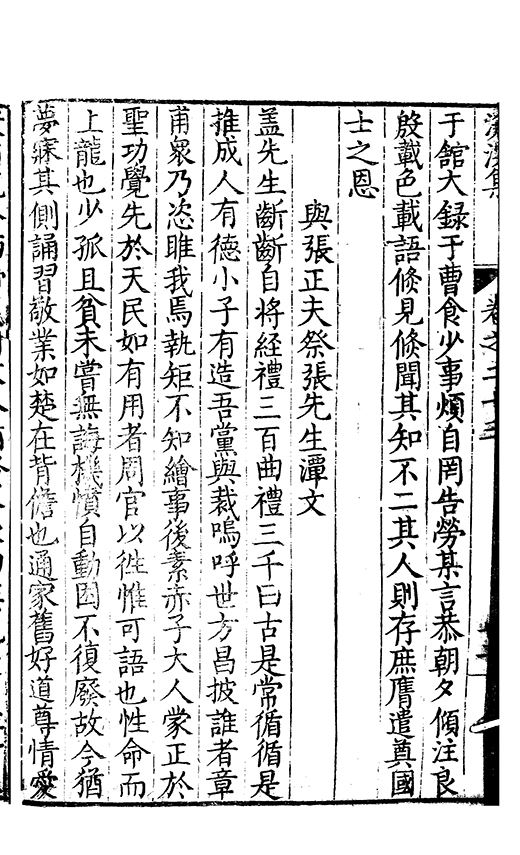 漢濱集
卷之二十五
于館大録于曹食少事煩自罔告勞某言恭朝夕傾注良
殷載色載語倏見倏聞其知不二其人則存庶膺遣奠國
士之恩
與張正夫祭張先生潭文
盖先生齗齗自将經禮三百曲禮三千曰古是常循循是
推成人有德小子有造吾黨與裁嗚呼世方昌披誰者章
甫衆乃恣睢我焉執矩不知繪事後素赤子大人蒙正於
聖功覺先於天民如有用者周官以徃惟可語也性命而
上龍也少孤且貧未嘗無誨機憤自動困不復廢故今猶
夢寐其側誦習敬業如楚在背儋也通家舊好道尊情愛